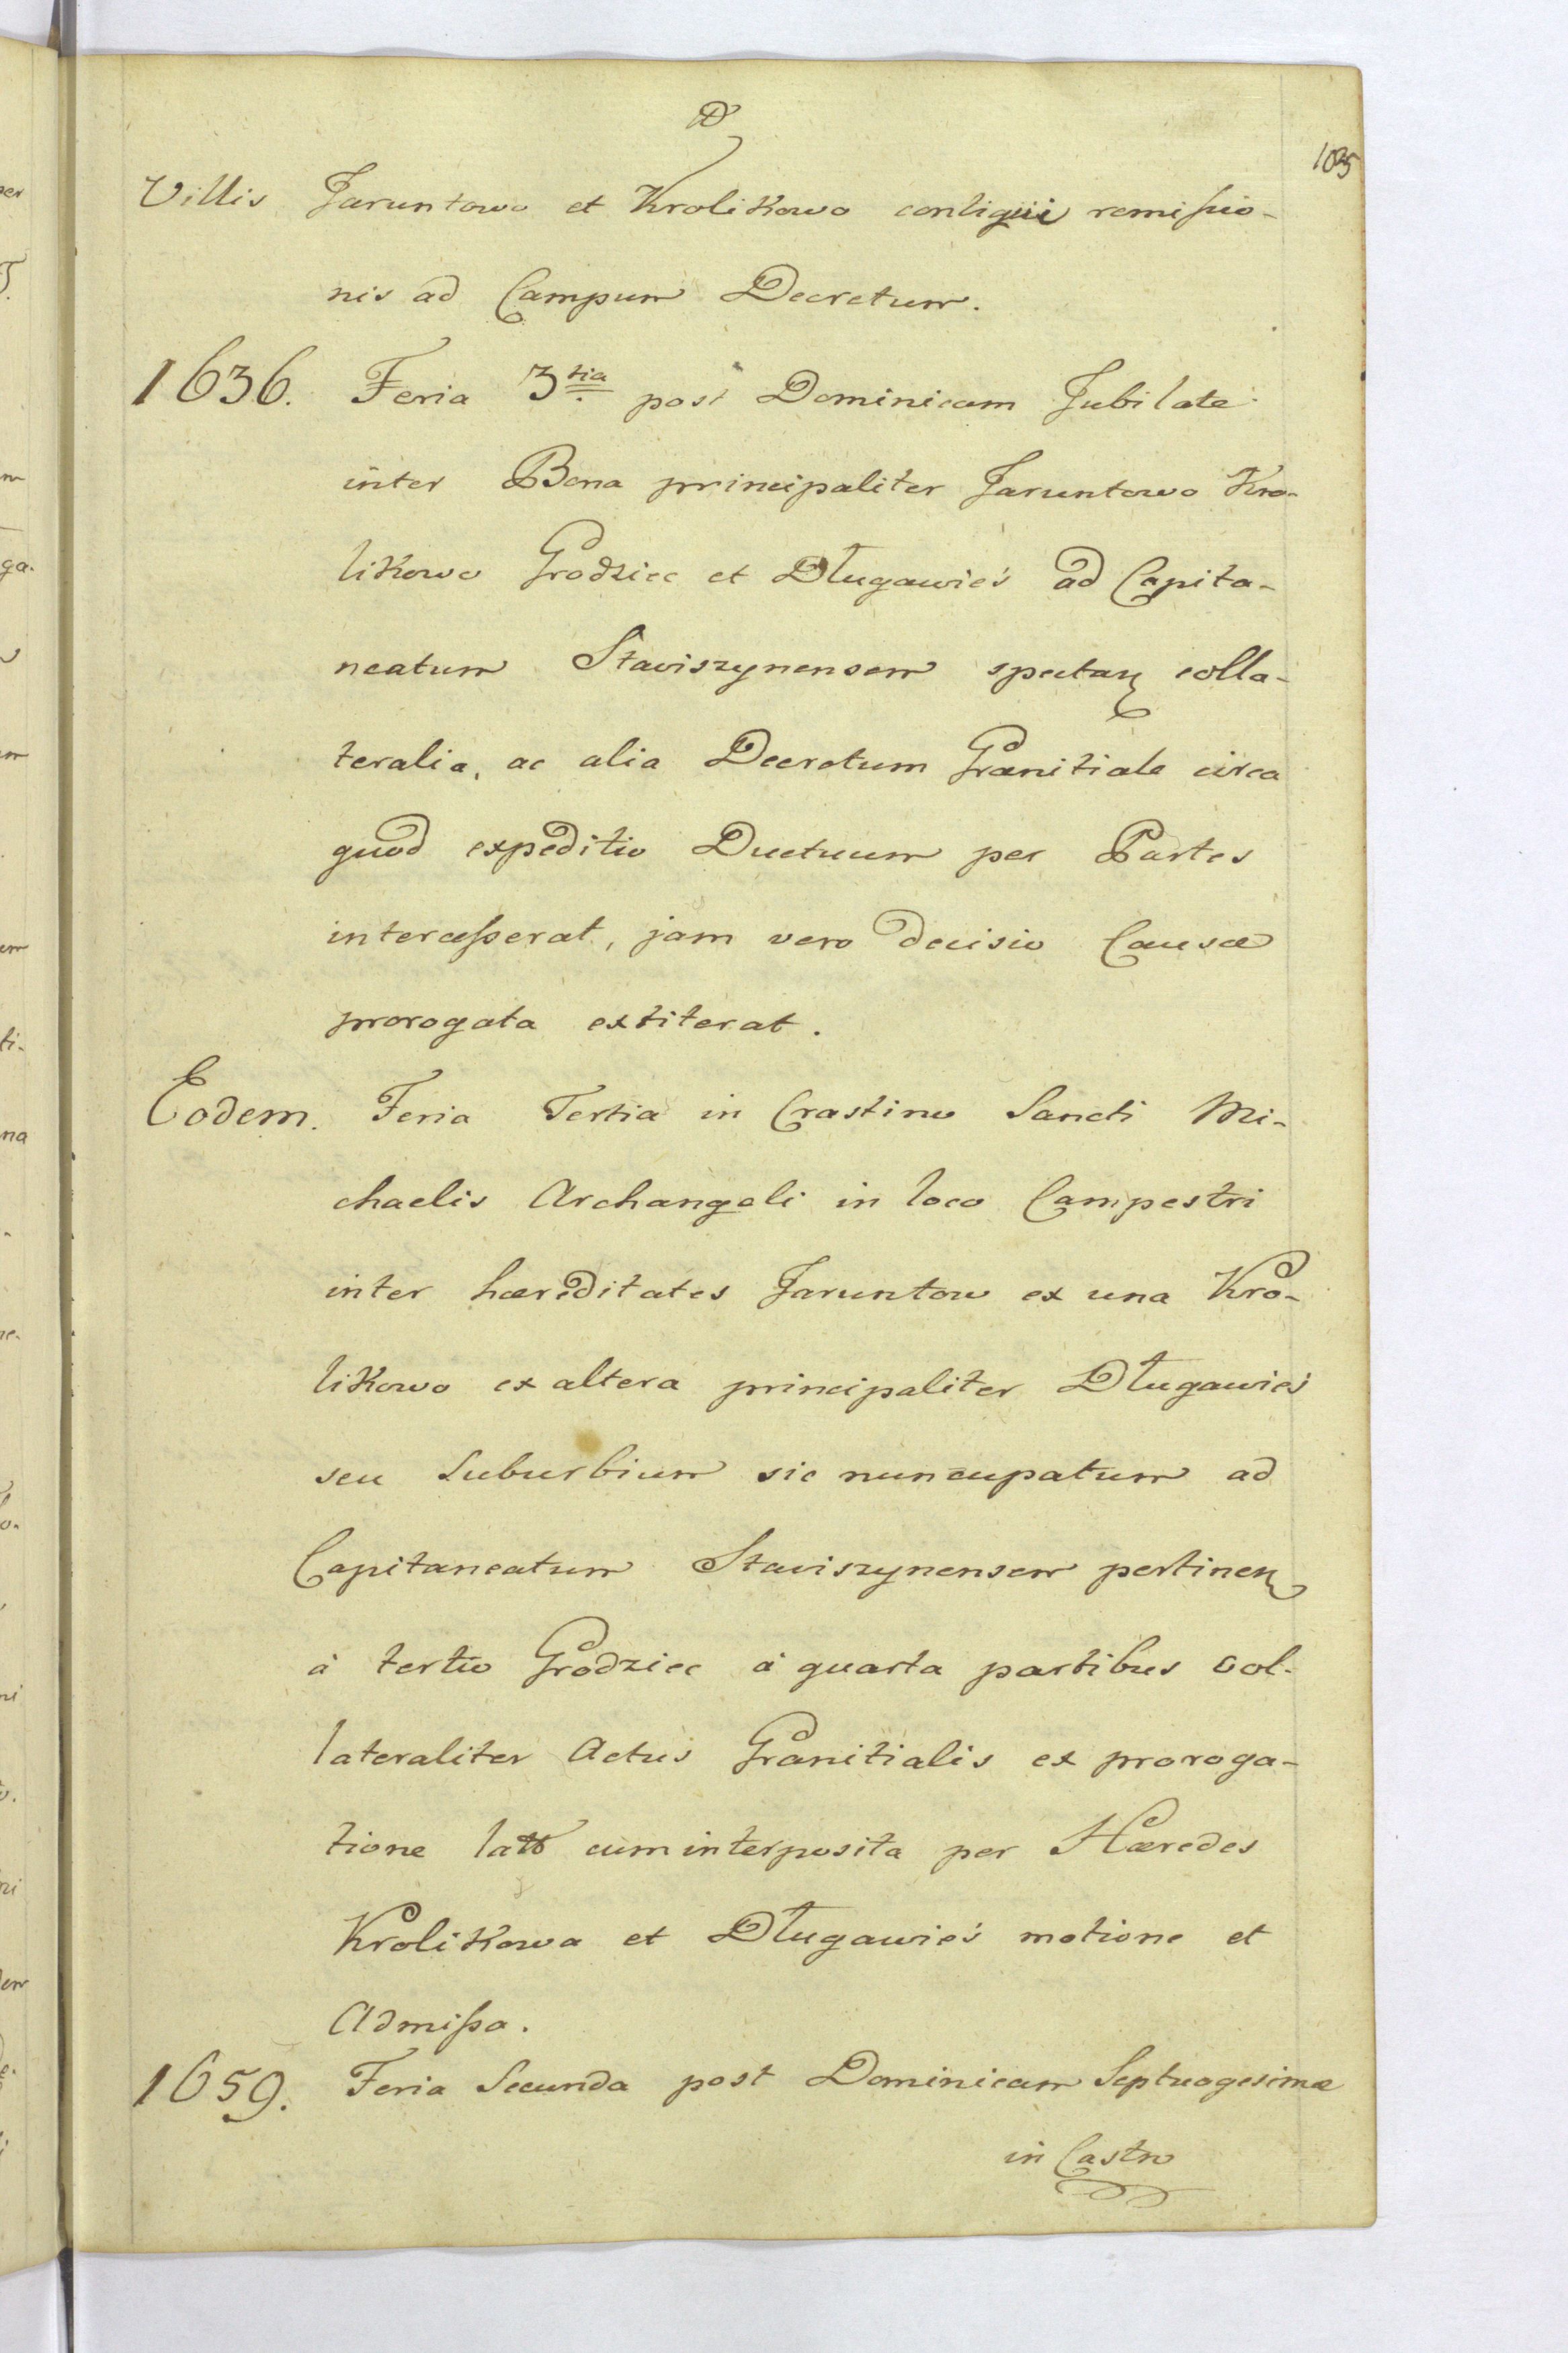 1035
Villis Jaruntowo et Krolikowo contigui remissio-
nis ad Campum Decretum.
1636. Feria 3tia post Dominicam Jubilate
inter Bona principaliter Jaruntowo Kro-
likowo Grodziec et Długawieś ad Capita-
neatum Stawiszynensem spectan colla-
teralia, ac alia Decretum Granitiale circa
quod expeditio Ductuum per Partes
intercesserat, jam vero decisio Causæ
prorogata extiterat.
Eodem. Feria Tertia in Crastino Sancti Mi-
chaelis Archangeli in loco Campestri
inter hæreditates Jaruntow ex una Kro-
likowo ex altera principaliter Długawieś
seu Suburbium sic nuncupatum ad
Capitaneatum Stawiszynensem pertinen
à tertio Grodziec à quarta partibus col-
lateraliter Actus Granitialis ex proroga-
tione cum interposita per Hæredes
Krolikowa et Długawieś motione et
Admissa.
1659. Feria Secunda post Dominicam Septuagesimæ
in Castro